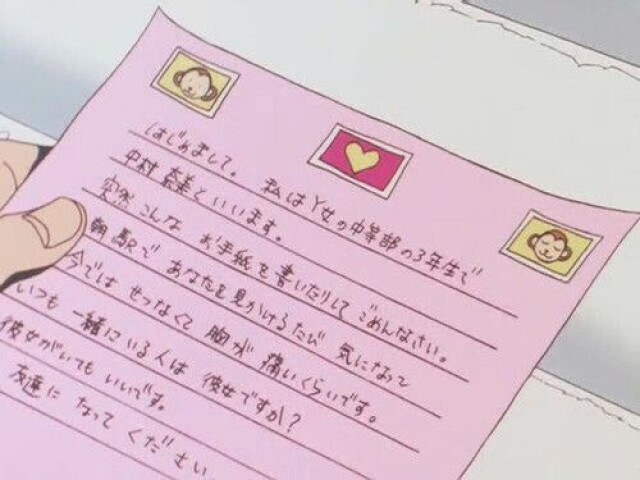 はじめまして。 私はY女の中等部の3年生で
中村奈美といいます。
突然こんなお手紙を書いたりしてごめんなさい。
朝駅であなたを見かけるたび気になって
今ではせつなくて胸が痛いくらいです。
いつも一緒にいる人は彼女ですか?
彼女がいてもいいです。
友達になってください。